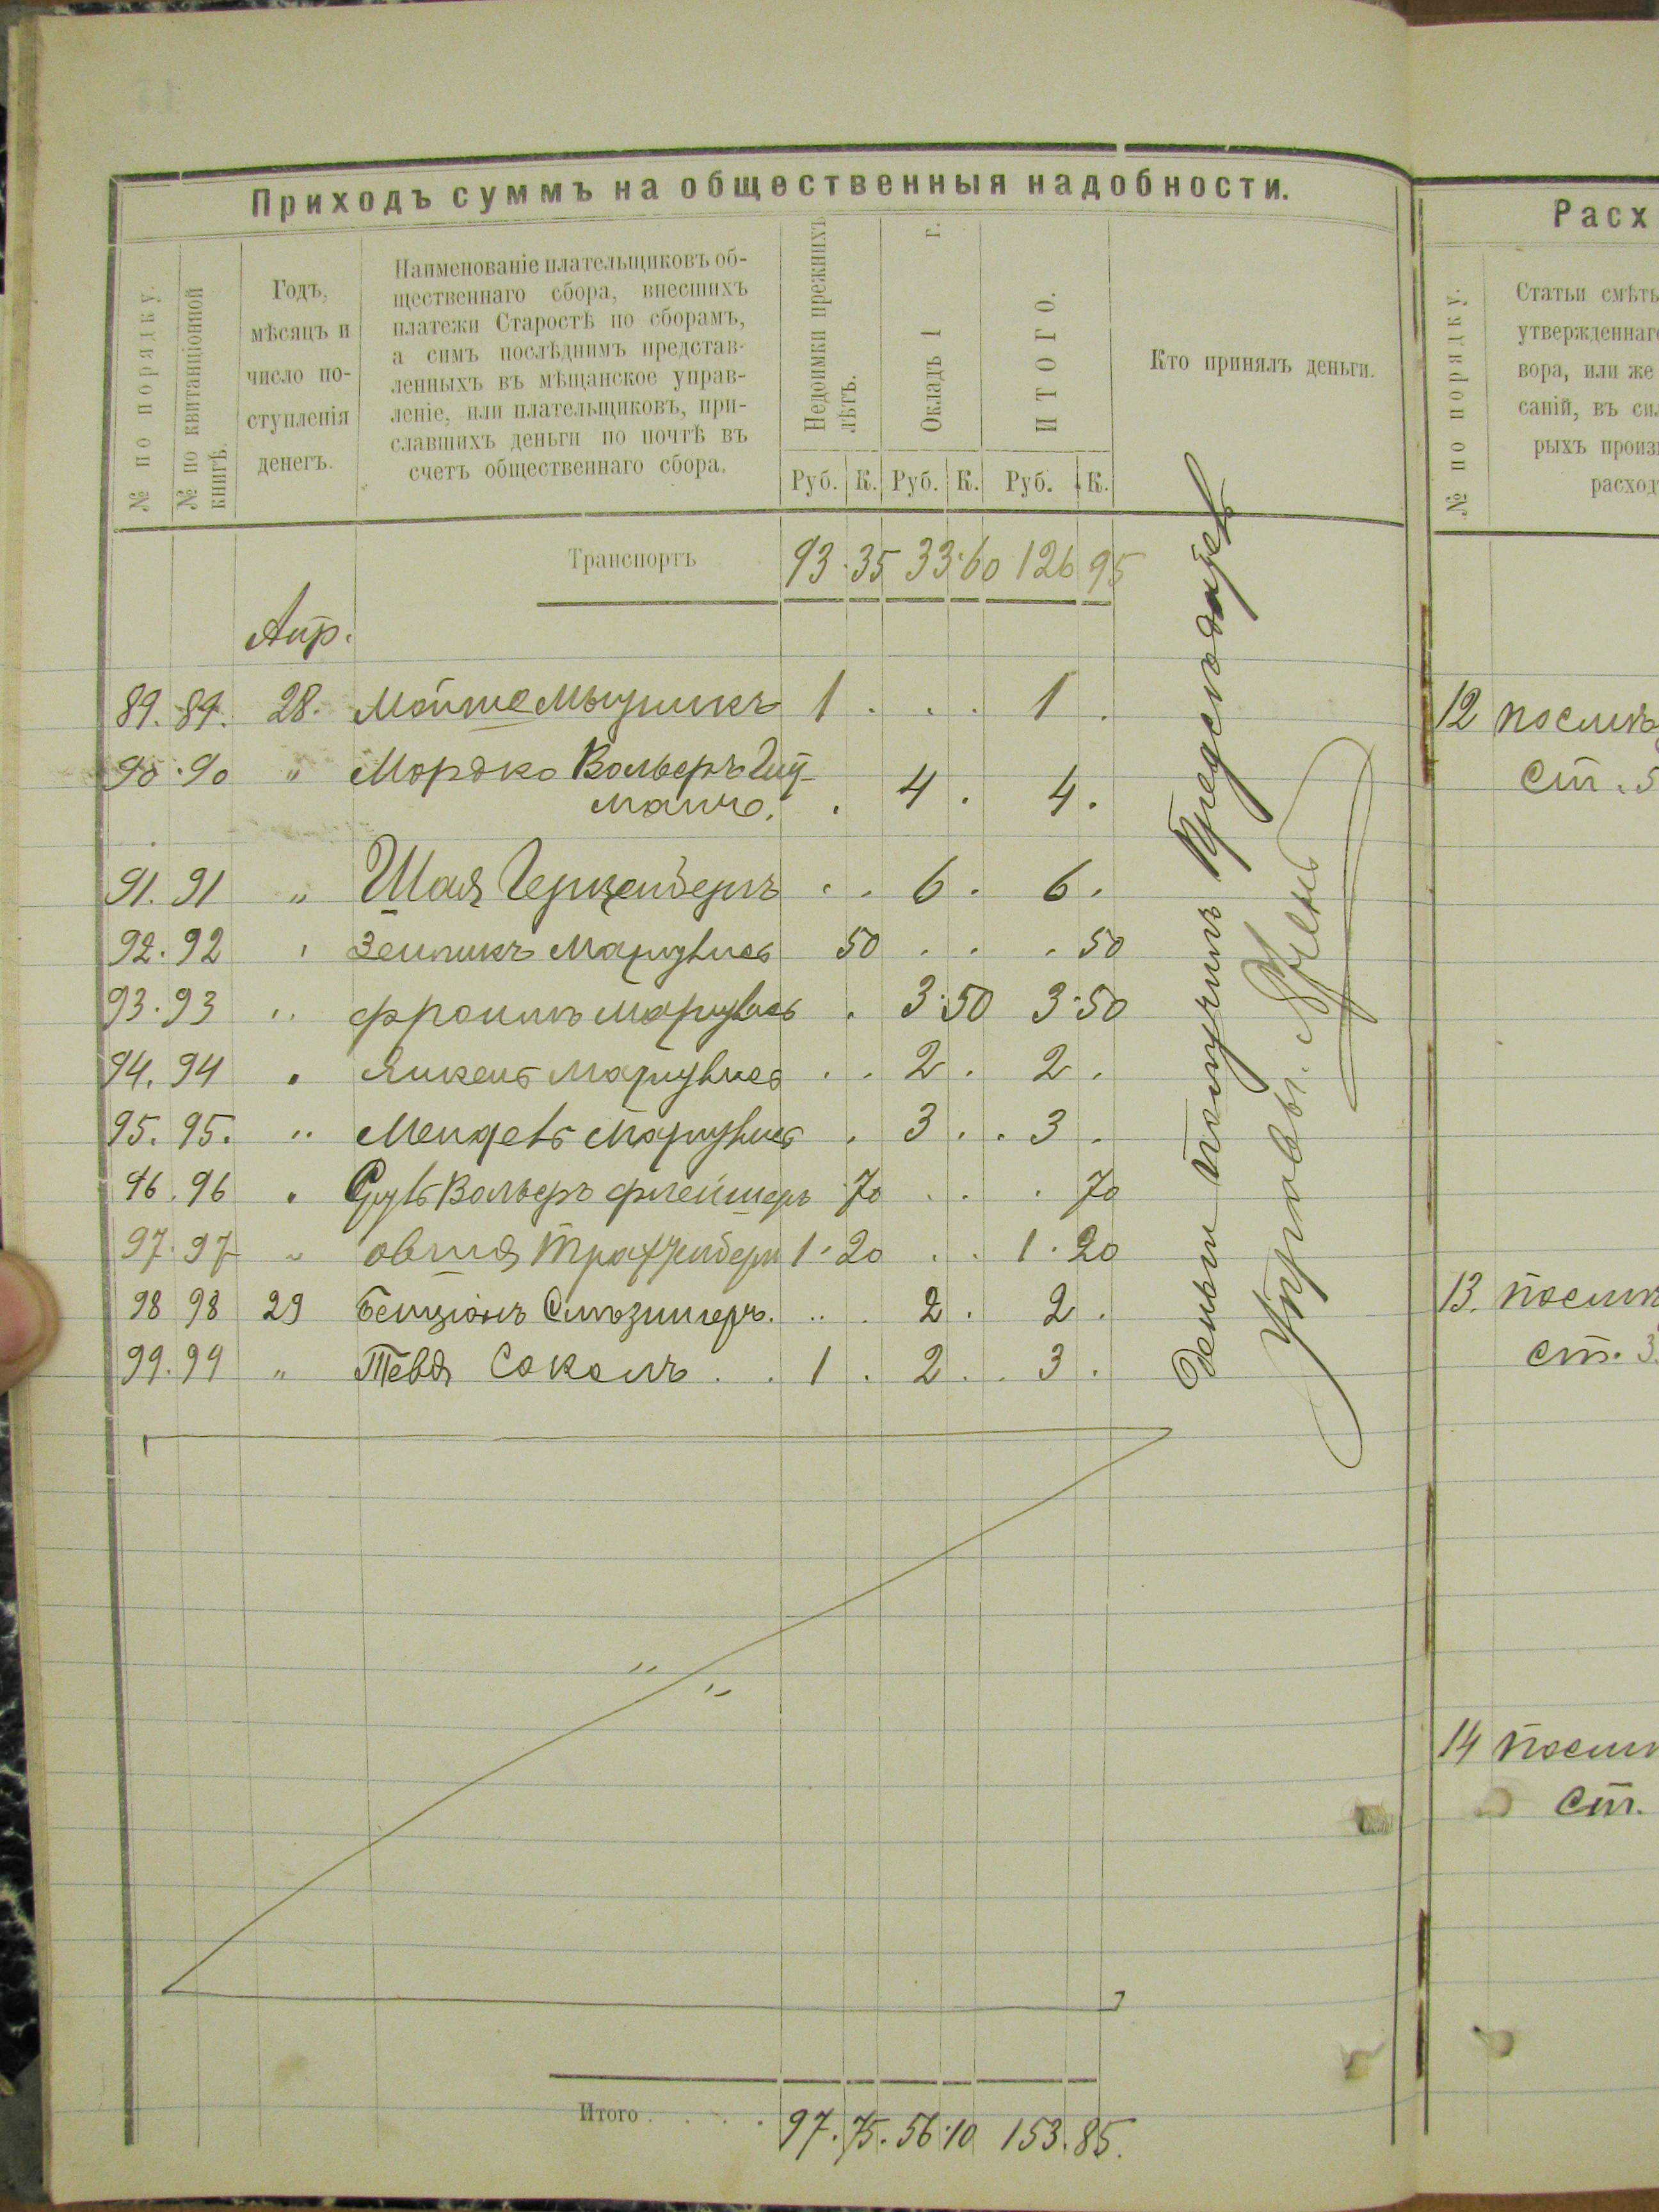 Приходъ суммъ на общественныя надобности.
№ по порядку.
№ по квитанціонной
книгѣ.
Годъ,
мѣсяцъ и
число по-
ступленія
денегъ.
Наименованіе плательщиковъ об-
щественнаго сбора, внесшихъ
платежи Старостѣ по сборамъ,
а симъ послѣднимъ представ-
ленныхъ въ мѣщанское управ-
леніе, или плательщиковъ, при-
славшихъ деньги по почтѣ въ
счетъ общественнаго сбора.
Недоимки прежнихъ
лѣтъ.
Окладъ 1 г.
ИТОГО.
Кто принялъ деньги.
Руб. К. Руб. К. Руб. К.
Транспортъ 93 35 33 60 126 95
Апр.
89. 89. 28. Мойше 1 . . . 1 .
90 90 " Мордко Вольфъ Гит-
манъ. . 4 . 4 .
91. 91 " Шая Герценбергъ . . 6 . 6 .
92. 92 " Зейликъ Маргулисъ 50 . . . 50
93. 93 " Фроимъ Маргулисъ . 3 50 3 50
94. 94 " Янкель Маргулисъ . . 2 . 2 .
95. 95. " Мендель Маргулисъ . 3 . . 3 .
96. 96 " Сруль Вольфъ Флейшеръ 70 . . . 70
97. 97 " Овшія Трахтенберг 1 20 . . 1 20
98 98 29 Бенціонъ . . . 2 . 2 .
99. 99 " Тевя Соколъ . . 1 . 2 . . 3 .
Деньги получилъ Предсѣдатель
Управы.
Итого . . . . 97. 75. 56 10 153. 85.
Расх
№ по порядку.
Статьи смѣты
утвержденнаго
вора, или же
саній, въ сил
рыхъ произ
расход
12
ст. 5
13.
ст. 3.
14
ст.